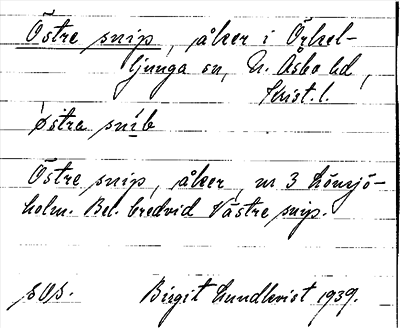 Östre snip, åker i Örkel-
ljunga sn, N. Åsbo hd,
Krist. l.
østra sníb
Östre snip, åker, nr 3 Hönsjö-
holm. Bel. bredvid Västre snip.
sOs. Birgit Lundkvist 1939.